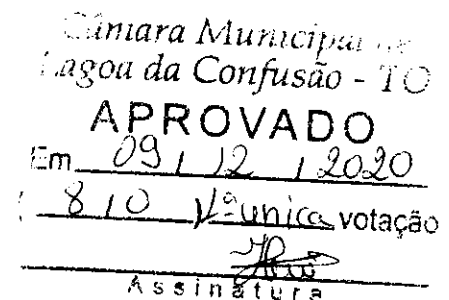 Câmara Municipal de
Lagoa da Confusão - TO
APROVADO
Em 09 / 12 / 2020
8 / 0 única votação
Assinatura